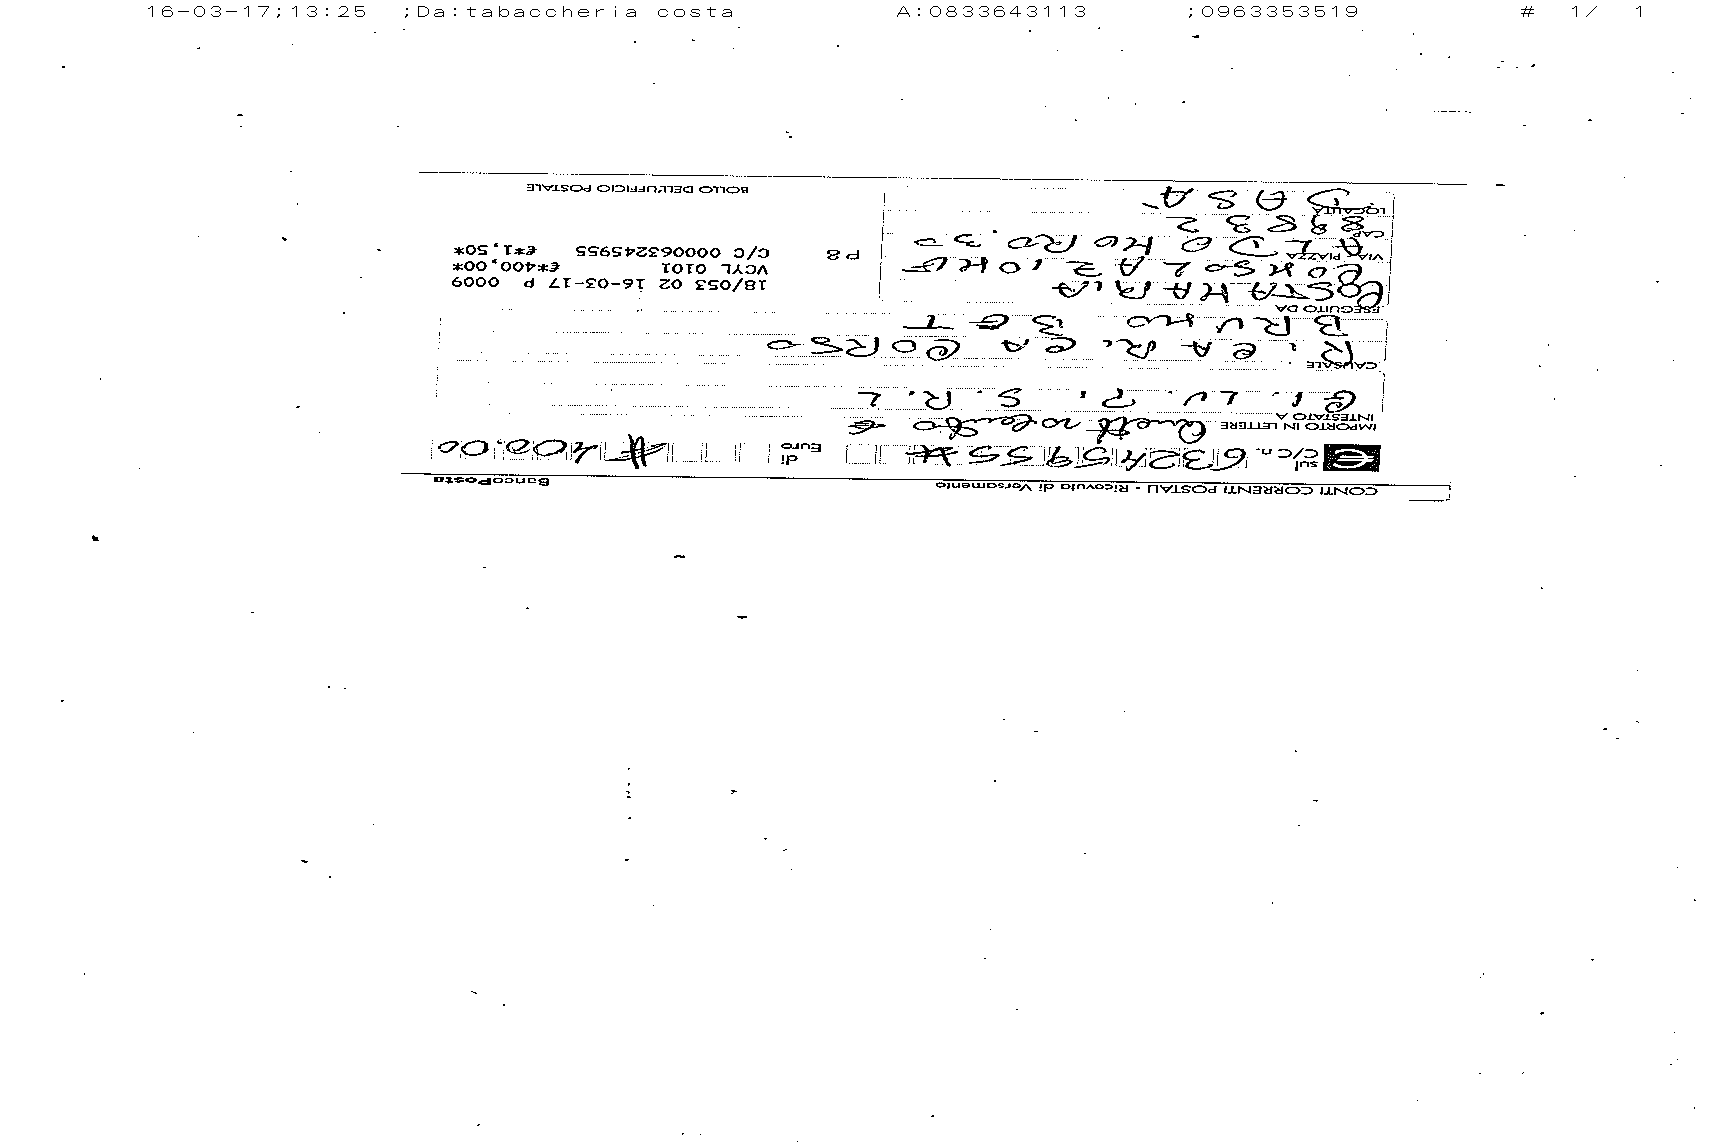 16-03-17;13:25 ;Da:tabaccheria costa A:0833643113 ;0963353519 # 1/ 1
CONTI CORRENTI POSTALI - Ricevuta di Versamento BancoPosta
sul C/C n. 63245955# di Euro # 400,00
IMPORTO IN LETTERE Quattrocento €
INTESTATO A
GI.LU.P. S.R.L
CAUSALE
RICARICA CORSO
BRUNO BET
ESEGUITO DA
COSTA MARIA
CONSOLAZIONE
VIA - PIAZZA
ALDO MORO.30
CAP
89832
LOCALITÀ
DASA'
18/053 02 16-03-17 P 0009
VCYL 0101 €*400,00*
P 8 C/C 000063245955 €*1,50*
BOLLO DELL'UFFICIO POSTALE